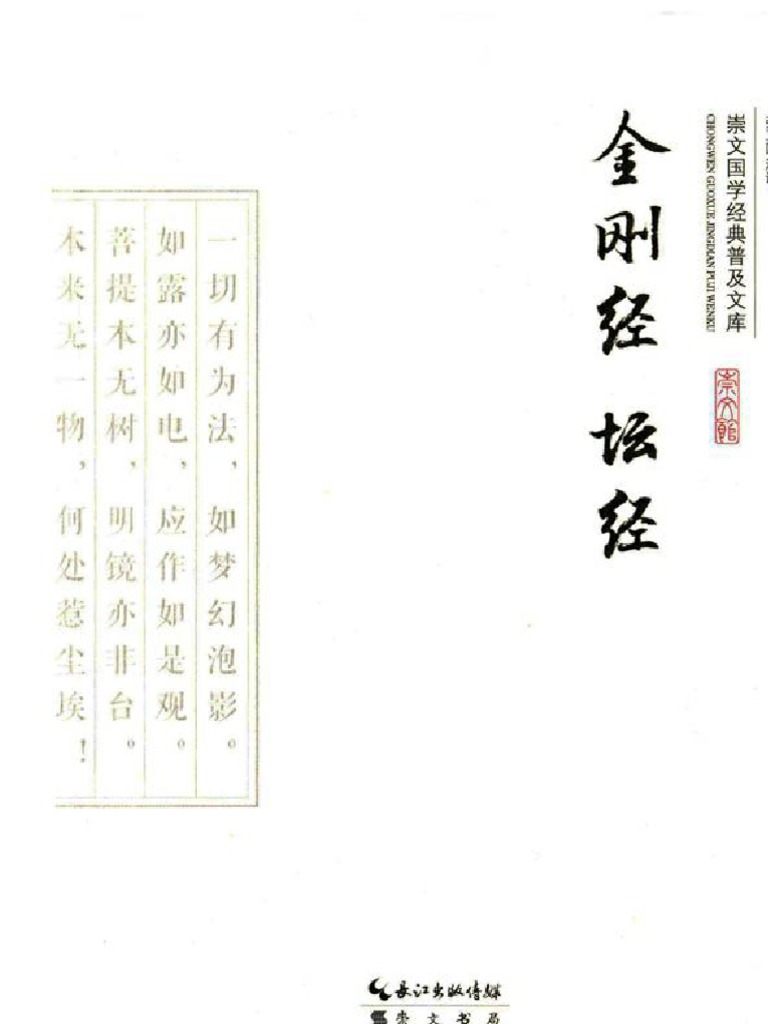 崇文国学经典普及文库
CHONGWEN GUOXUE JINGDIAN PUJI WENKU
崇文館
金刚经 坛经
一切有为法，如梦幻泡影。
如露亦如电，应作如是观。
菩提本无树，明镜亦非台。
本来无一物，何处惹尘埃！
长江出版传媒
崇文书局